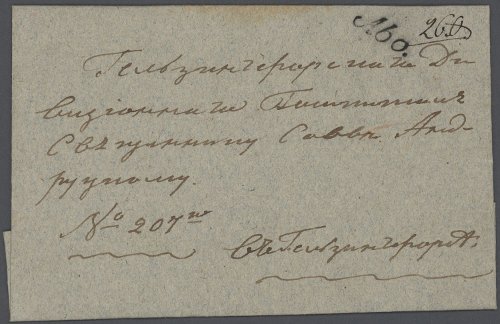 Або.
260
Гельзингфорскаго Ди
визіоннаго Госпиталя
Священнику Савве Анд-
руцкому.
№ 207го
въ Гельзингфорсъ.